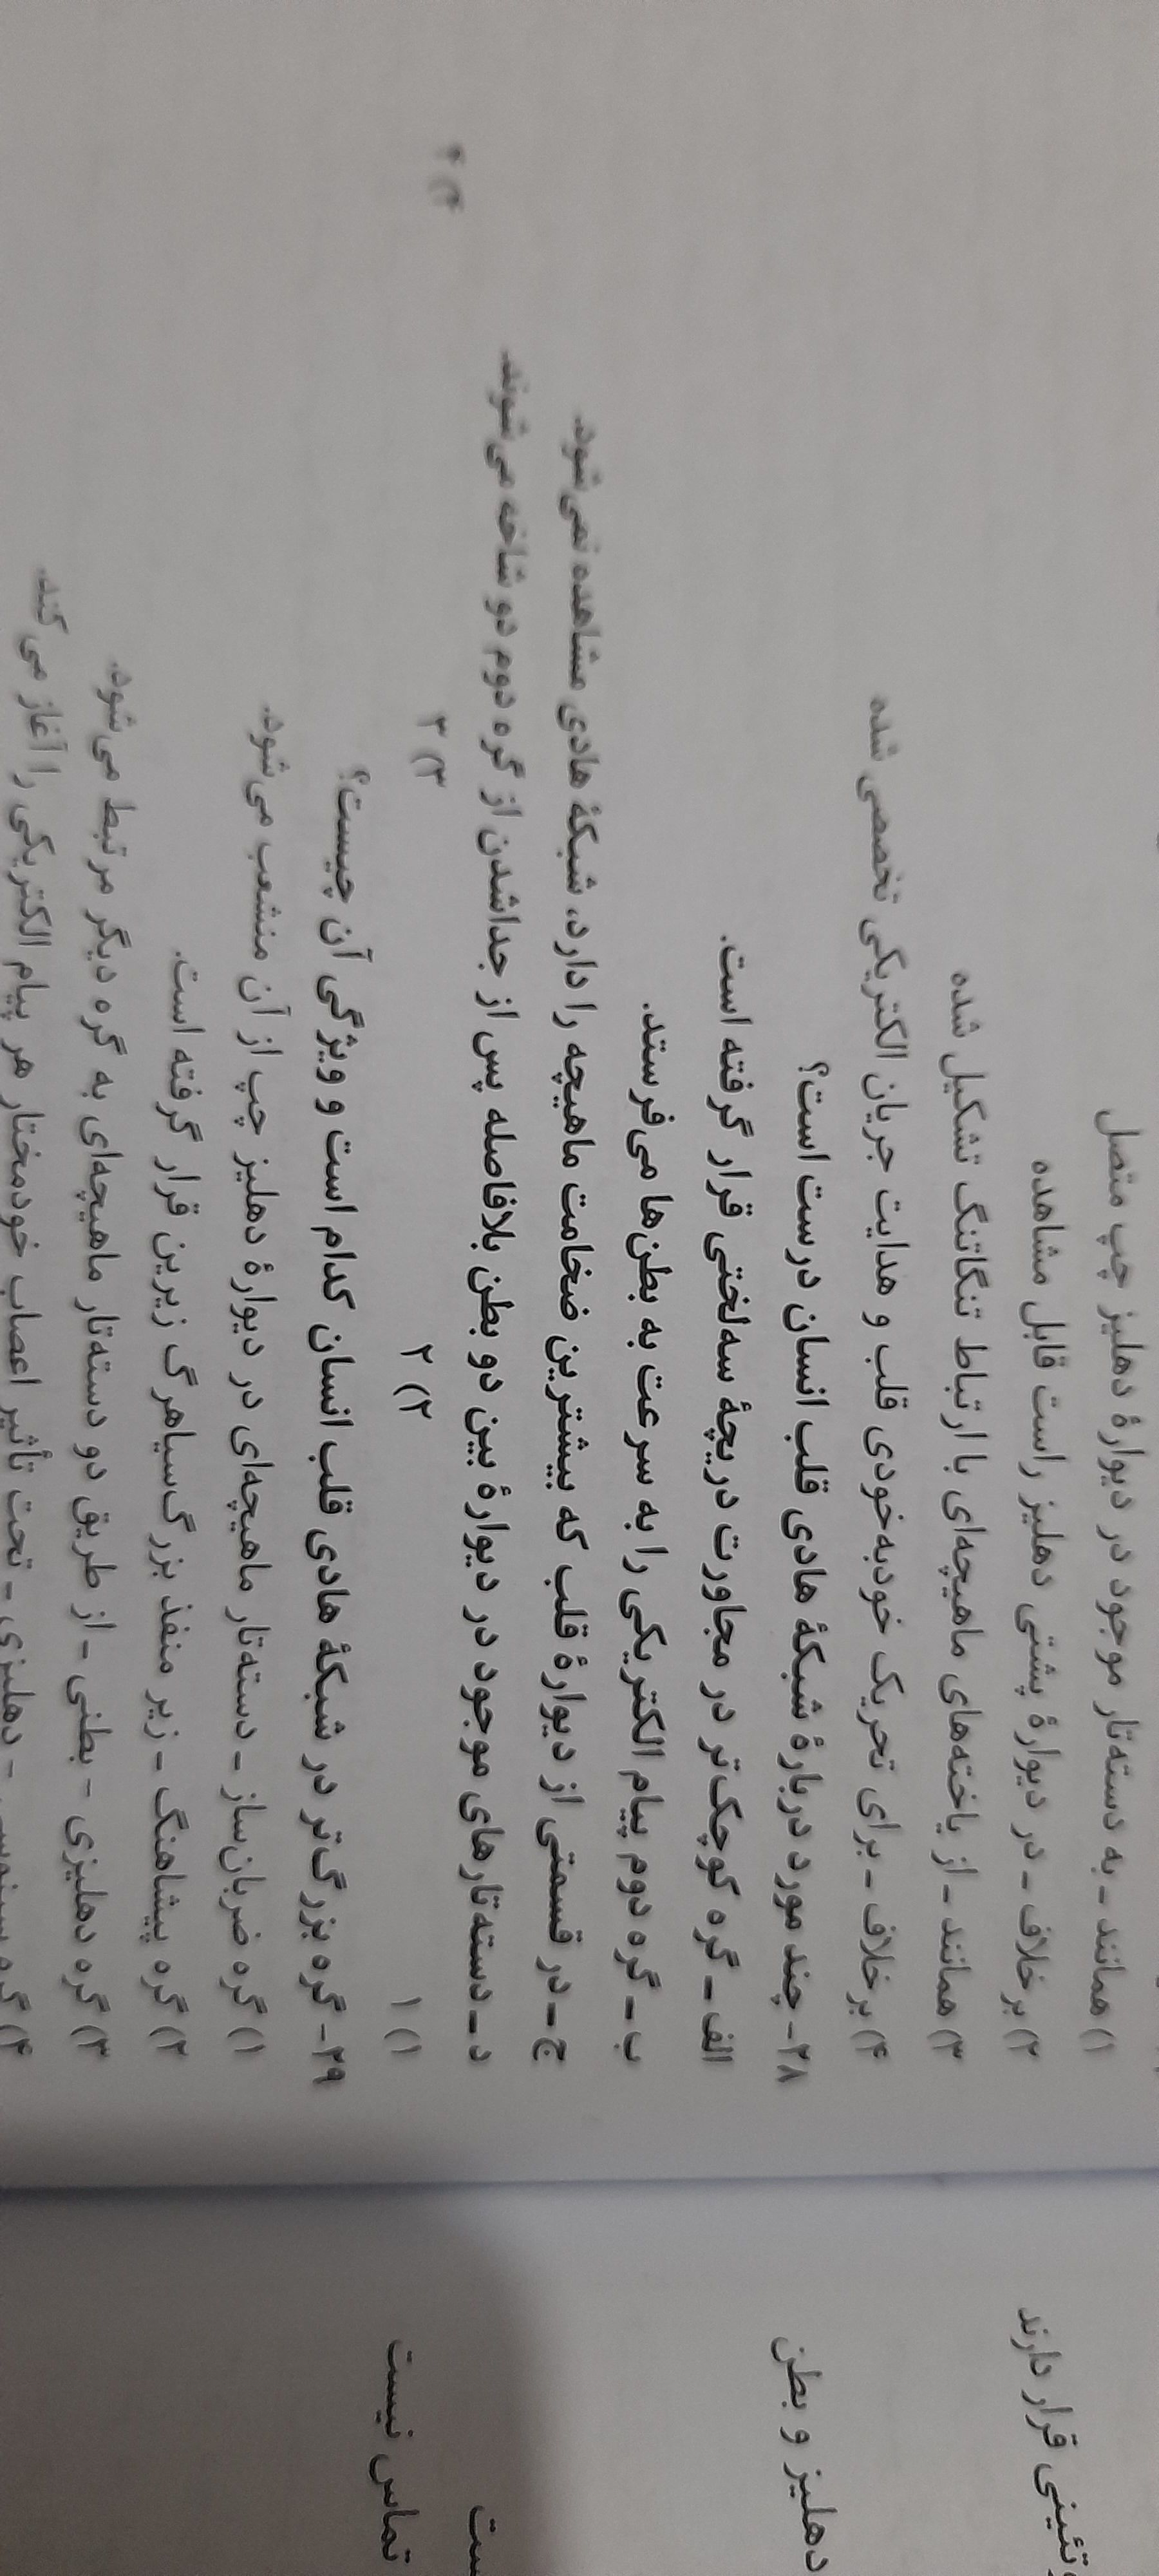 ۱) همانند ـ به دسته‌تار موجود در دیوارهٔ دهلیز چپ متصل
۲) برخلاف ـ در دیوارهٔ پشتی دهلیز راست قابل مشاهده
۳) همانند ـ از یاخته‌های ماهیچه‌ای با ارتباط تنگاتنگ تشکیل شده
۴) برخلاف ـ برای تحریک خودبه‌خودی قلب و هدایت جریان الکتریکی تخصصی شده
۳۸- چند مورد دربارهٔ شبکهٔ هادی قلب انسان درست است؟
الف ـ گره کوچک‌تر در مجاورت دریچهٔ سه‌لختی قرار گرفته است.
ب ـ گره دوم پیام الکتریکی را به سرعت به بطن‌ها می‌فرستد.
ج ـ در قسمتی از دیوارهٔ قلب که بیشترین ضخامت ماهیچه را دارد، شبکهٔ هادی مشاهده نمی‌شود.
د ـ دسته‌تارهای موجود در دیوارهٔ بین دو بطن بلافاصله پس از جداشدن از گره دوم دو شاخه می‌شوند.
۱) ۱ ۲) ۲ ۳) ۳ ۴) ۴
۳۹- گره بزرگ‌تر در شبکهٔ هادی قلب انسان کدام است و ویژگی آن چیست؟
۱) گره ضربان‌ساز ـ دسته‌تار ماهیچه‌ای در دیوارهٔ دهلیز چپ از آن منشعب می‌شود.
۲) گره پیشاهنگ ـ زیر منفذ بزرگ‌سیاهرگ زیرین قرار گرفته است.
۳) گره دهلیزی - بطنی ـ از طریق دو دسته‌تار ماهیچه‌ای به گره دیگر مرتبط می‌شود.
۴) گره سینوسی - دهلیزی ـ تحت تأثیر اعصاب خودمختار هر پیام الکتریکی را آغاز می‌کند.
قرار دارند
دهلیز و بطن
تماس نیست